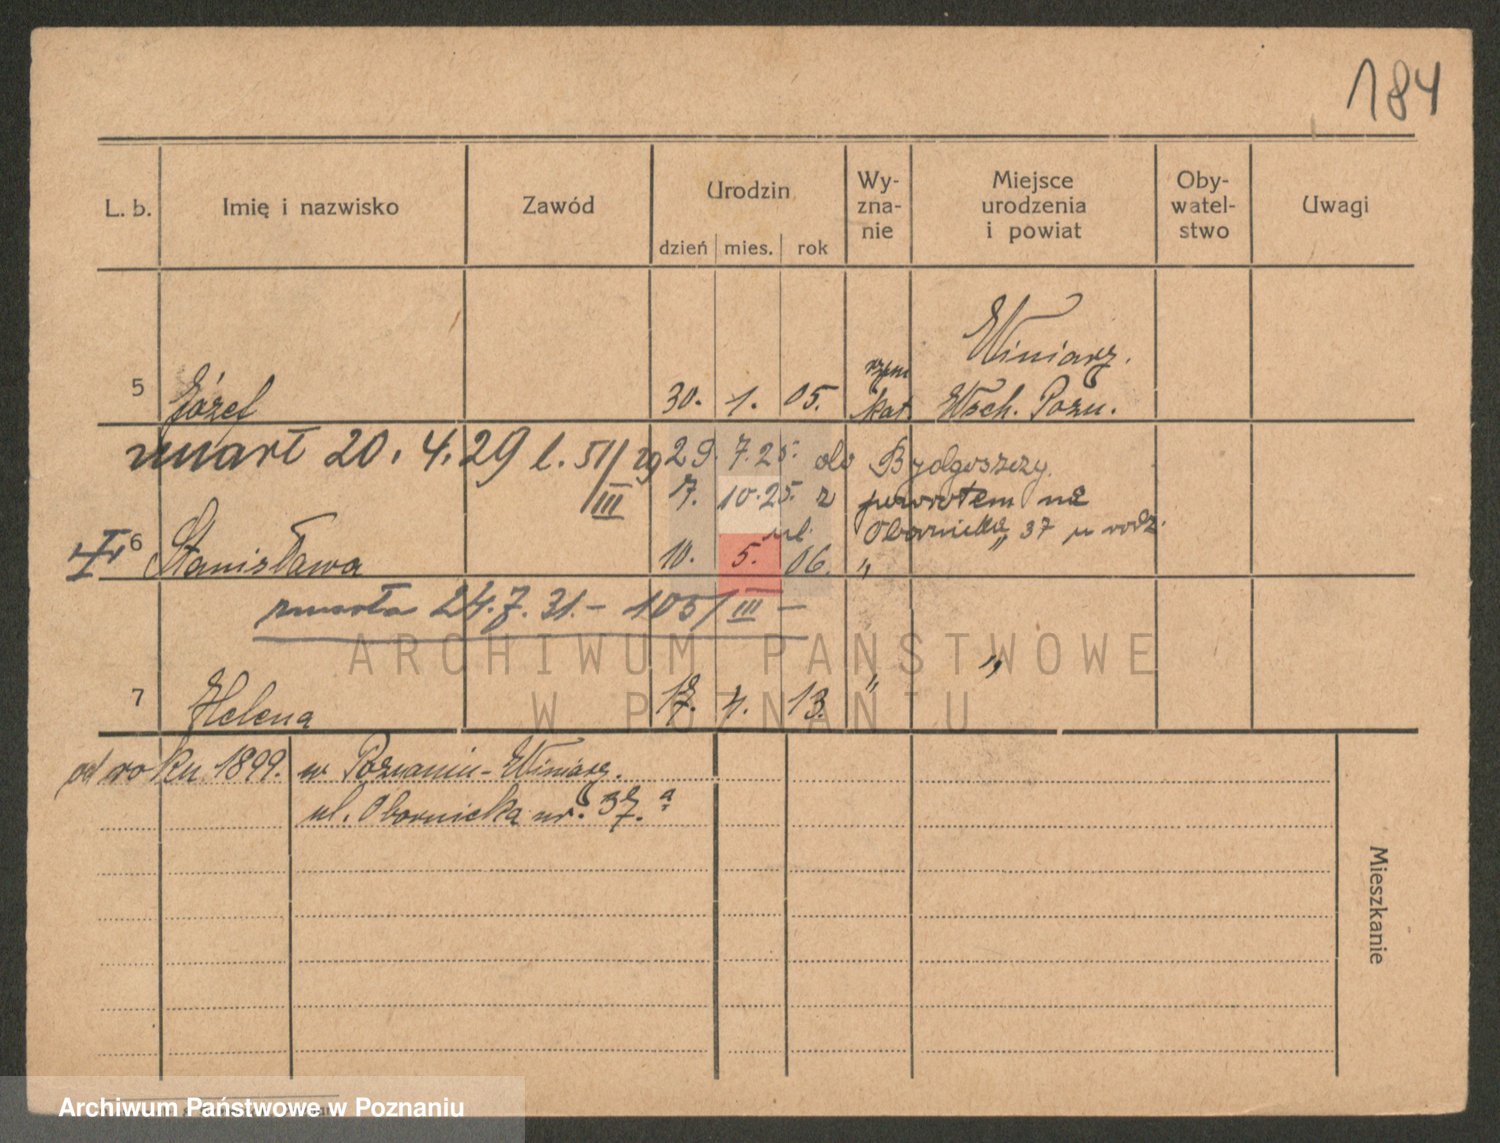 184
L. b. Imię i nazwisko Zawód Urodzin dzień mies. rok Wy-zna-nie Miejsce urodzenia i powiat Oby-watel-stwo Uwagi
Winiarz.
5 Józef 30. 1. 05. rzym kat. Wsch. Pozn.
umarł 20. 4. 29 l. 51/29 III
29. 7. 25. do Bydgoszczy.
7. 10. 25. z powrotem na
ul. Obornicka 37 u rodz.
6 Stanisława 10. 5. 06. "
zmarła 24. 7. 31. – 105/III –
7 Helena 17. 4. 13. " "
ARCHIWUM PAŃSTWOWE
W POZNANIU
od roku 1899. w Poznaniu-Winiarz.
ul. Obornicka nr. 37. a
Mieszkanie
Archiwum Państwowe w Poznaniu